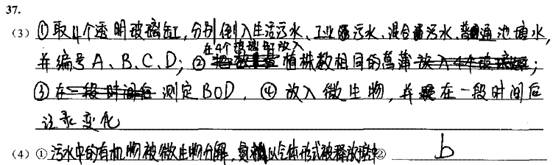 37.
(3) ①取4个透明玻璃缸,分别倒入生活污水、工业污水、混合污水、普通池塘水,
在4个玻璃缸放入
并编号A、B、C、D; ② 植株数相同的菖蒲
③ 测定BOD. ④ 放入微生物, 并 在一段时间后
记录变化
(4) ①污水中的有机物被微生物分解, 以气体形式被释放 ② b